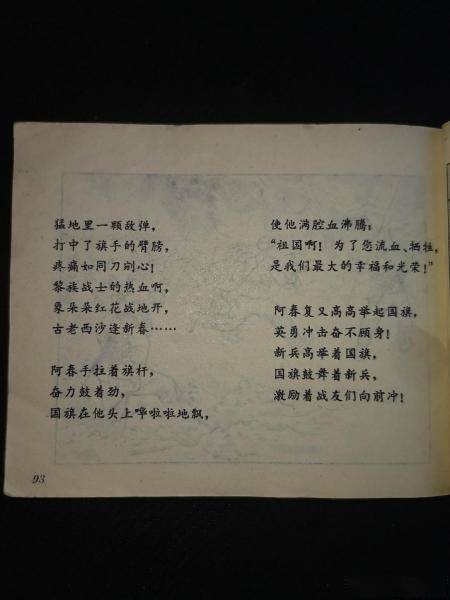 猛地里一颗敌弹,
打中了旗手的臂膀,
疼痛如同刀剜心!
黎族战士的热血啊,
象朵朵红花战地开,
古老西沙逢新春……
阿春手拄着旗杆,
奋力鼓着劲,
国旗在他头上哗啦啦地飘,
使他满腔血沸腾;
“祖国啊!为了您流血、牺牲,
是我们最大的幸福和光荣!”
阿春复又高高举起国旗,
英勇冲击奋不顾身!
新兵高举着国旗,
国旗鼓舞着新兵,
激励着战友们向前冲!
93